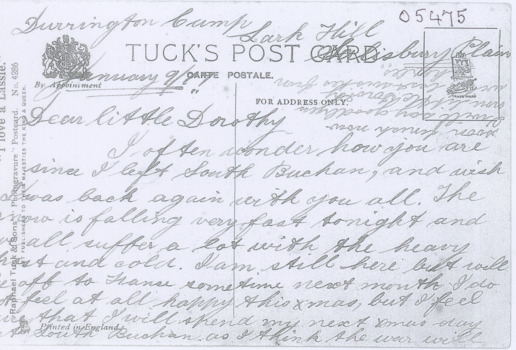 05475
Durrington Camp
Lark Hill
Salisbury Plain
TUCK'S POST CARD
CARTE POSTALE.
By Appointment
January 9th
FOR ADDRESS ONLY.
Dear little Dorothy
I often wonder how you are
since I left South Buchan, and wish
was back again with you all. The
now is falling very fast tonight and
all suffer a lot with the heavy
and cold. I am still here but will
off to France sometime next month. I do
feel at all happy this xmas, but I feel
that I will spend my next xmas day
South Buchan, as I think the war will
Printed in England
I love a Lassie.
Postcard. No. 4286
Raphael Tuck & Sons